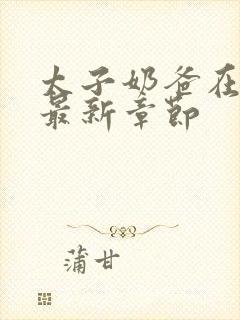 太子奶爸在
最新章节
蒲甘